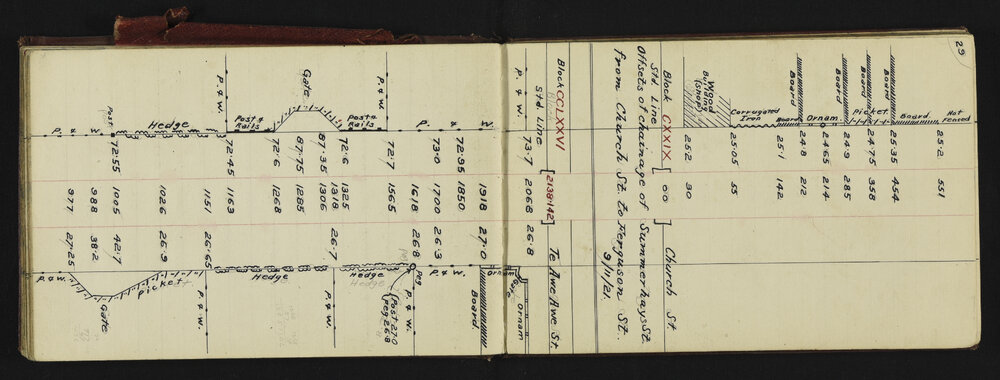 29
Not fenced 25.2 551
Board.
Board 25.35 454
Board 24.75 358
Picket
Board 24.9 285
Ornam. 24.65 214
Board 24.8 212
Board 25.1 142
Corrugated Iron 25.05 55
Wood Building (Shop) 25.2 30
Block CXXIX [ 0.0 ] Church St.
Std. Line
Offsets of chainage of Summerhays St.
from Church St. to Ferguson St.
3/11/21.
Block CCLXXVI
Std Line [2138.142] Te Awe Awe St.
P. & W. 73.7 2068 26.8 Ornam
Gate
Ornam
P. & W. 1918 27.0 Board
72.95 1850
73.0 1700 26.3 P. & W.
1618 26.8 Peg P. & W.
(Post 27.0 Peg 26.8)
P. & W. 72.7 1565
Post & Rails Hedge
72.6 1325
1318 26.7 P. & W.
87.35 1306
Gate
87.75 1285
72.6 1268 Hedge
Post & Rails
P. & W. 72.45 1163
1151 26.65 P. & W.
Hedge
1026 26.9 Picket
Post 72.55 1005 42.7
Gate
P. & W. 988 38.2
977 27.25 P. & W.